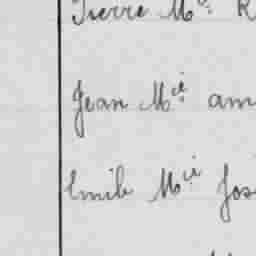 Pierre Mie
Jean Mie am
Emile Mie Jos